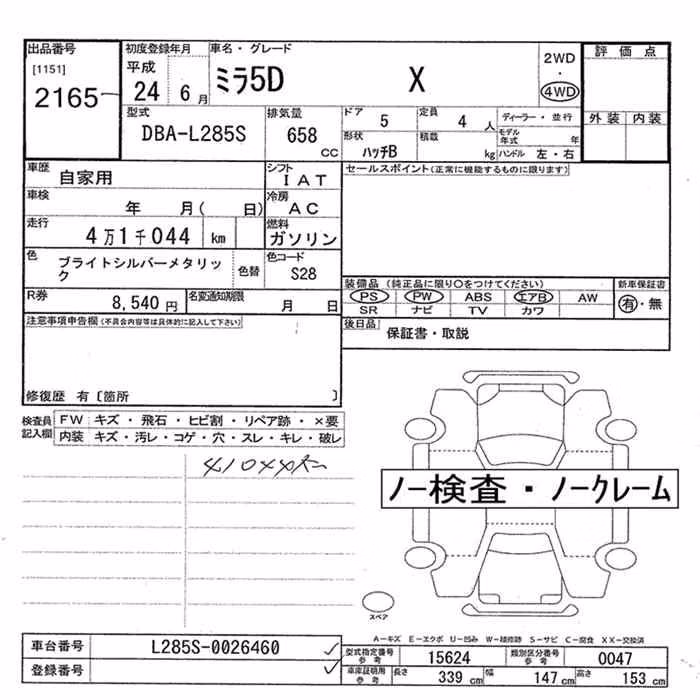 出品番号
[1151]
2165
初度登録年月
平成
24 6 月
車名・グレード
ミラ5D X
2WD
・
4WD
評価点
外装 内装
型式
DBA-L285S
排気量
658
CC
ドア 5
定員 4 人
ディーラー・並行
形状 ハッチB
積載 kg
モデル年式 年
ハンドル 左・右
車歴 自家用
シフト IAT
セールスポイント(正常に機能するものに限ります)
車検 年 月( 日)
冷房 AC
走行 4万1千044 km
燃料 ガソリン
色 ブライトシルバーメタリック
色替
色コード S28
装備品 (純正品に限り○をつけてください)
新車保証書
PS PW ABS エアB AW
有・無
SR ナビ TV カワ
R券 8,540 円
名変通知期限 月 日
後日品 保証書・取説
注意事項申告欄(不具合内容等は具体的に記入して下さい)
修復歴 有〔箇所 〕
検査員記入欄
FW キズ・飛石・ヒビ割・リペア跡・×要
内装 キズ・汚レ・コゲ・穴・スレ・キレ・破レ
41044K
ノー検査・ノークレーム
スペア
A-キズ E-エクボ U-凹み W-補修跡 S-サビ C-腐食 XX-交換済
車台番号 L285S-0026460
登録番号
型式指定番号 参考 15624
類別区分番号 参考 0047
車庫証明用 参考 長さ 339 cm 幅 147 cm 高さ 153 cm